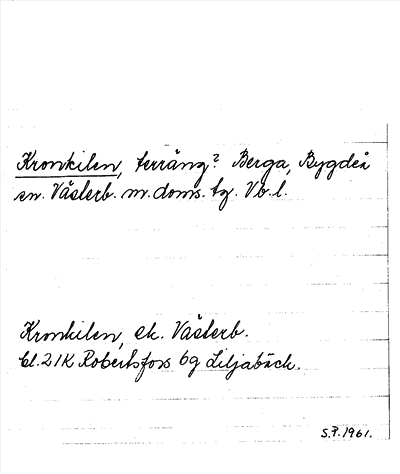 Kronkilen, terräng? Berga, Bygdeå
sn. Västerb. m. doms. tg. Vb. l.
Kronkilen, ek. Västerb.
bl. 21K Robertsfors 6g Liljabäck.
S.F. 1961.